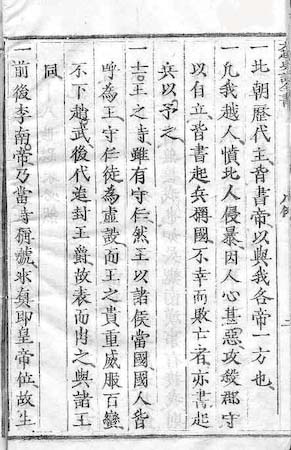 一北朝歷代主皆書帝以與我各帝一方也
一凡我越人憤北人侵暴因人心甚惡攻殺郡守
以自立皆書起兵稱國不幸而敗亡者亦書起
兵以予之
一士王之時雖有守任然王以諸侯當國國人皆
呼為王守任徒為虛設而王之貴重威服百蠻
不下趙武後代追封王爵故表而附之與諸王
同
一前後李南帝乃當時稱號須即皇帝位故生